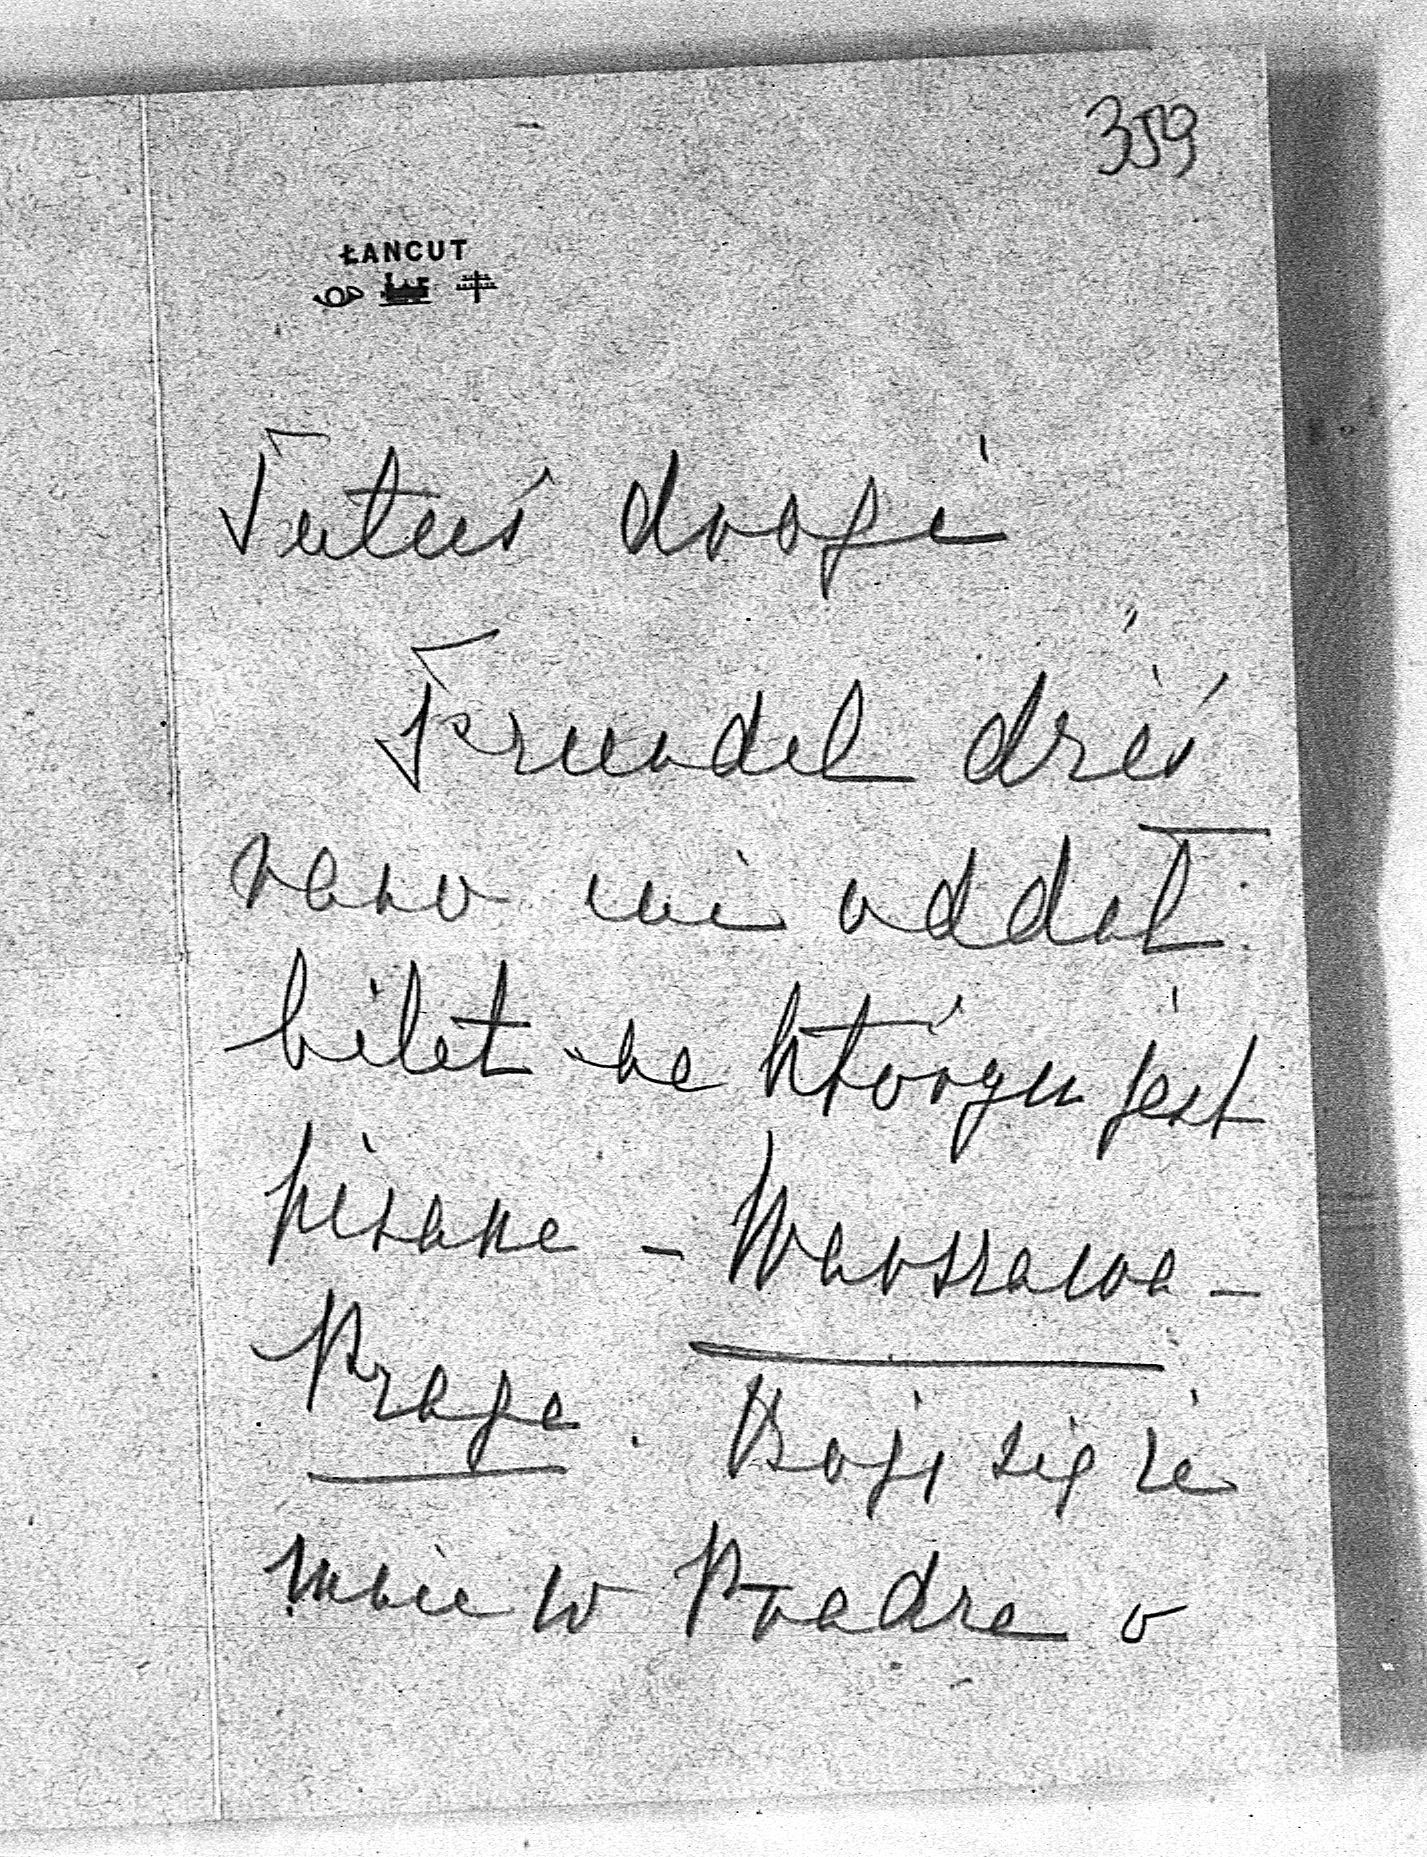 359
ŁANCUT
Tutuś drogi
dziś
rano mi oddał
bilet na którym jest
pisane - Warszawa -
Praga. Boję się że
mnie w Pradze o